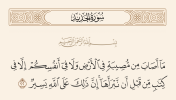 سُورَةُ الحَدِيدِ
بِسْمِ اللَّهِ الرَّحْمَٰنِ الرَّحِيمِ
مَآ أَصَابَ مِن مُّصِيبَةٍ فِي ٱلْأَرْضِ وَلَا فِيٓ أَنفُسِكُمْ إِلَّا فِي
كِتَٰبٍ مِّن قَبْلِ أَن نَّبْرَأَهَآ إِنَّ ذَٰلِكَ عَلَى ٱللَّهِ يَسِيرٌ ٢٢